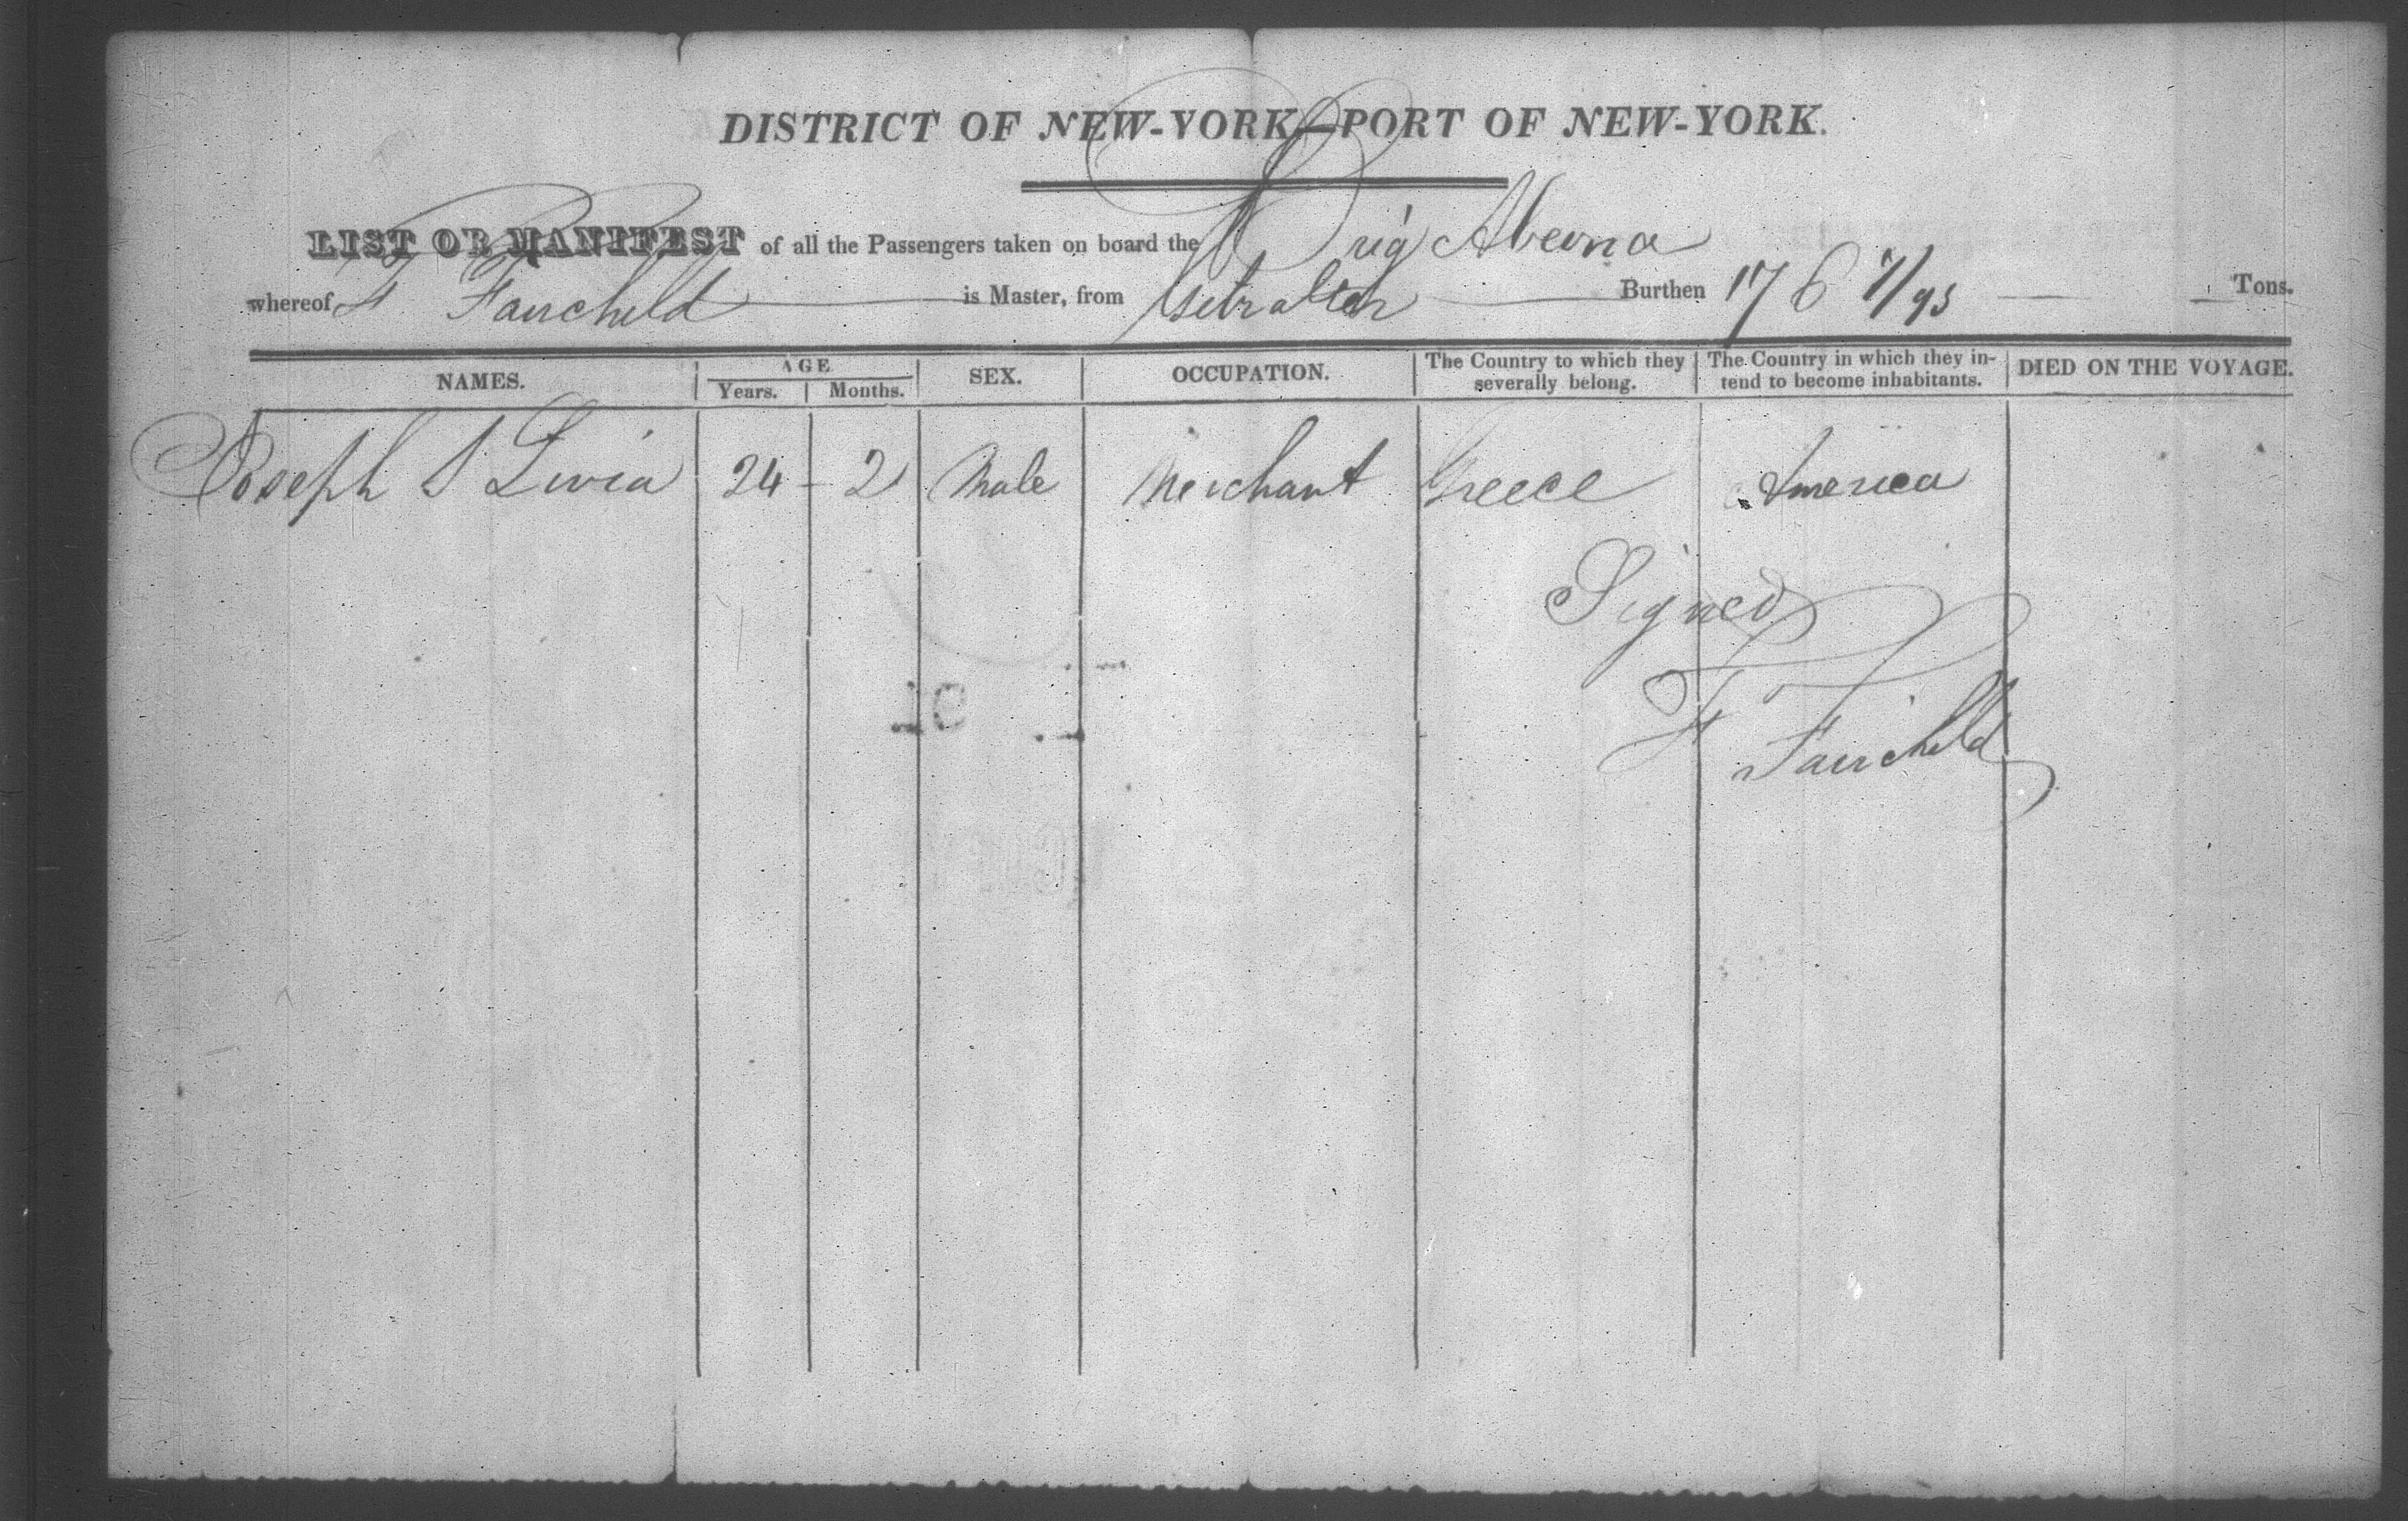 DISTRICT OF NEW-YORK—PORT OF NEW-YORK.
LIST OR MANIFEST of all the Passengers taken on board the Brig
whereof F Fairchild is Master, from Gibralter Burthen 176 /95 Tons.
NAMES. AGE Years. Months. SEX. OCCUPATION. The Country to which they severally belong. The Country in which they intend to become inhabitants. DIED ON THE VOYAGE.
Joseph S 24 - 2 Male Merchant Greece America
Signed
F Fairchild